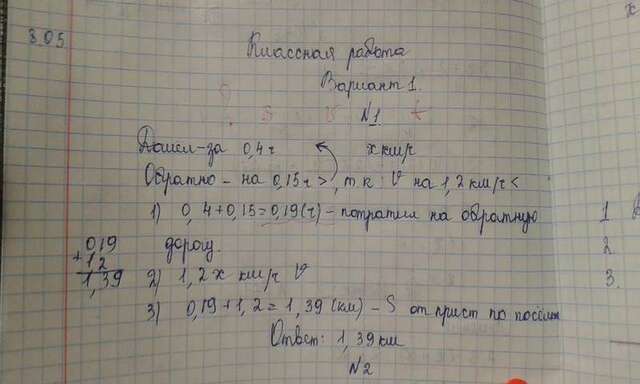 8.05
Классная работа
Вариант 1.
S V t
N1
Дошёл-за 0,4ч х км/ч
Обратно - на 0,15ч >, т к : V на 1,2 км/ч <
1) 0,4+0,15=0,19(ч) - потратил на обратную
дорогу.
0,19
+1,2
1,39
2) 1,2х км/ч V
3) 0,19+1,2=1,39(км) - S от прист по посёлк
Ответ: 1,39км
N2
1
2
3.